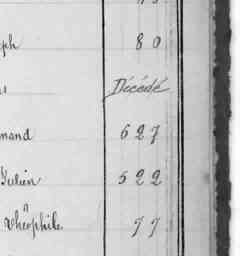 ph 80
Décédé
mand 627
Julien 522
" Théophile 77